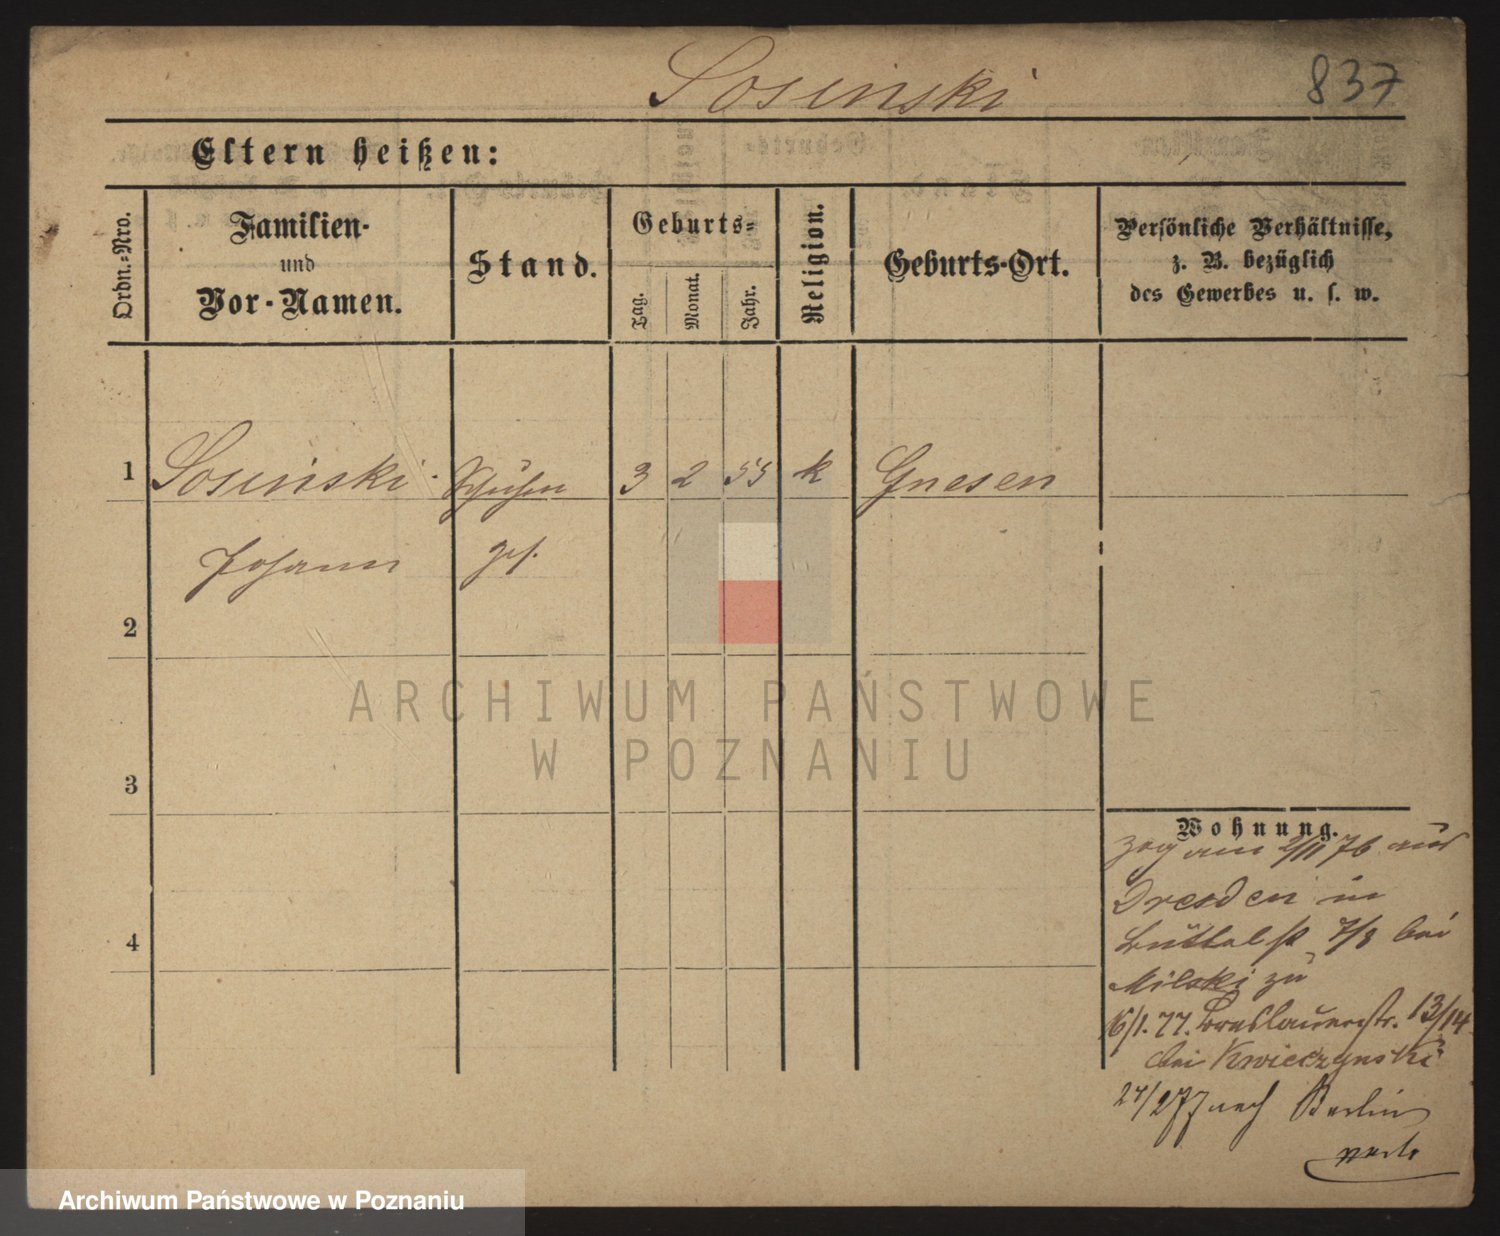 Sosinski
837
Eltern heißen:
Ordn.-Nro.
Familien-
und
Vor-Namen.
Stand.
Geburts-
Tag.
Monat.
Jahr.
Religion.
Geburts-Ort.
Persönliche Verhältnisse,
z. B. bezüglich
des Gewerbes u. s. w.
1 Sosinski Schuhm 3 2 55 k Gnesen
Johann ges.
2
ARCHIWUM PAŃSTWOWE
W POZNANIU
3
Wohnung.
zog am 2/11 76 aus
Dresden in
Büttelst 7/8 bei
Milski zu
16/1. 77. Breslauerstr. 13/14
bei Kwieczynski
24/2 77 nach Berlin
4
Archiwum Państwowe w Poznaniu